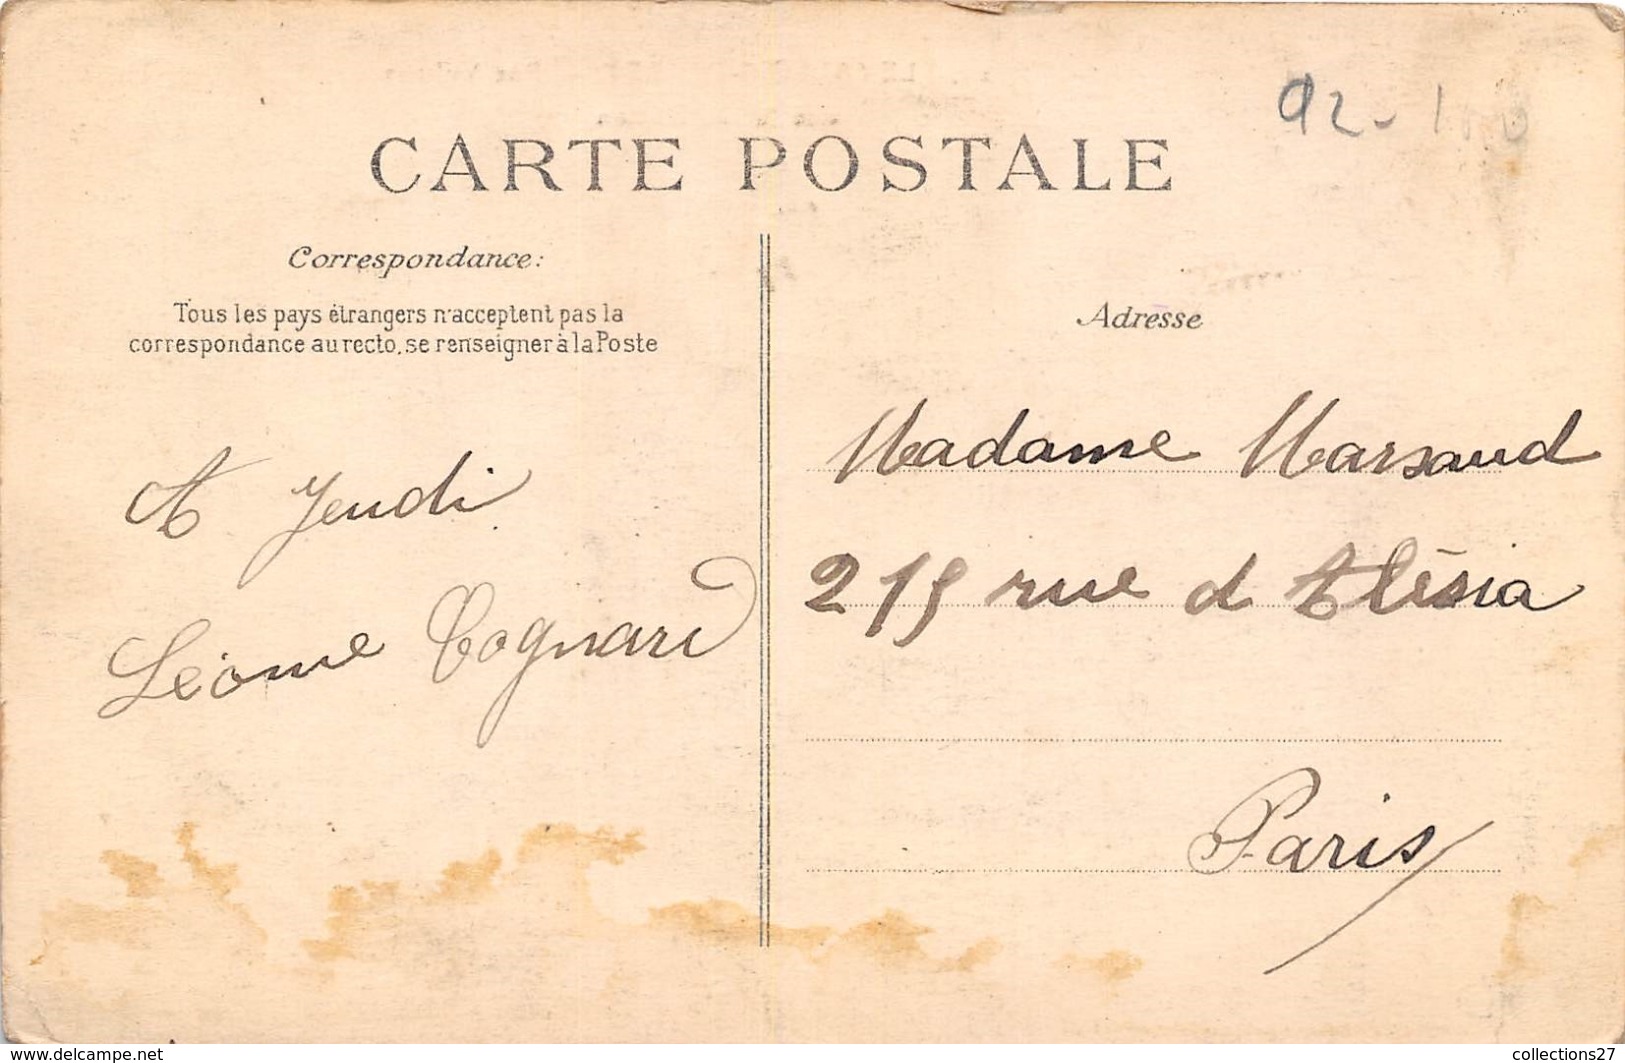 92-1
CARTE POSTALE
Correspondance:
Tous les pays étrangers n'acceptent pas la
correspondance au recto, se renseigner à la Poste
A Jeudi
Léonne Cognard
Adresse
Madame Marsaud
215 rue d Alésia
Paris
www.delcampe.net
collections27